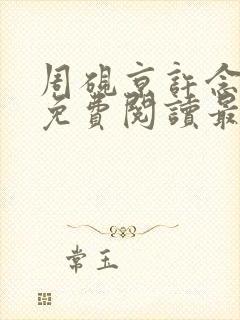 周硯京許念
免費閱讀最
常玉